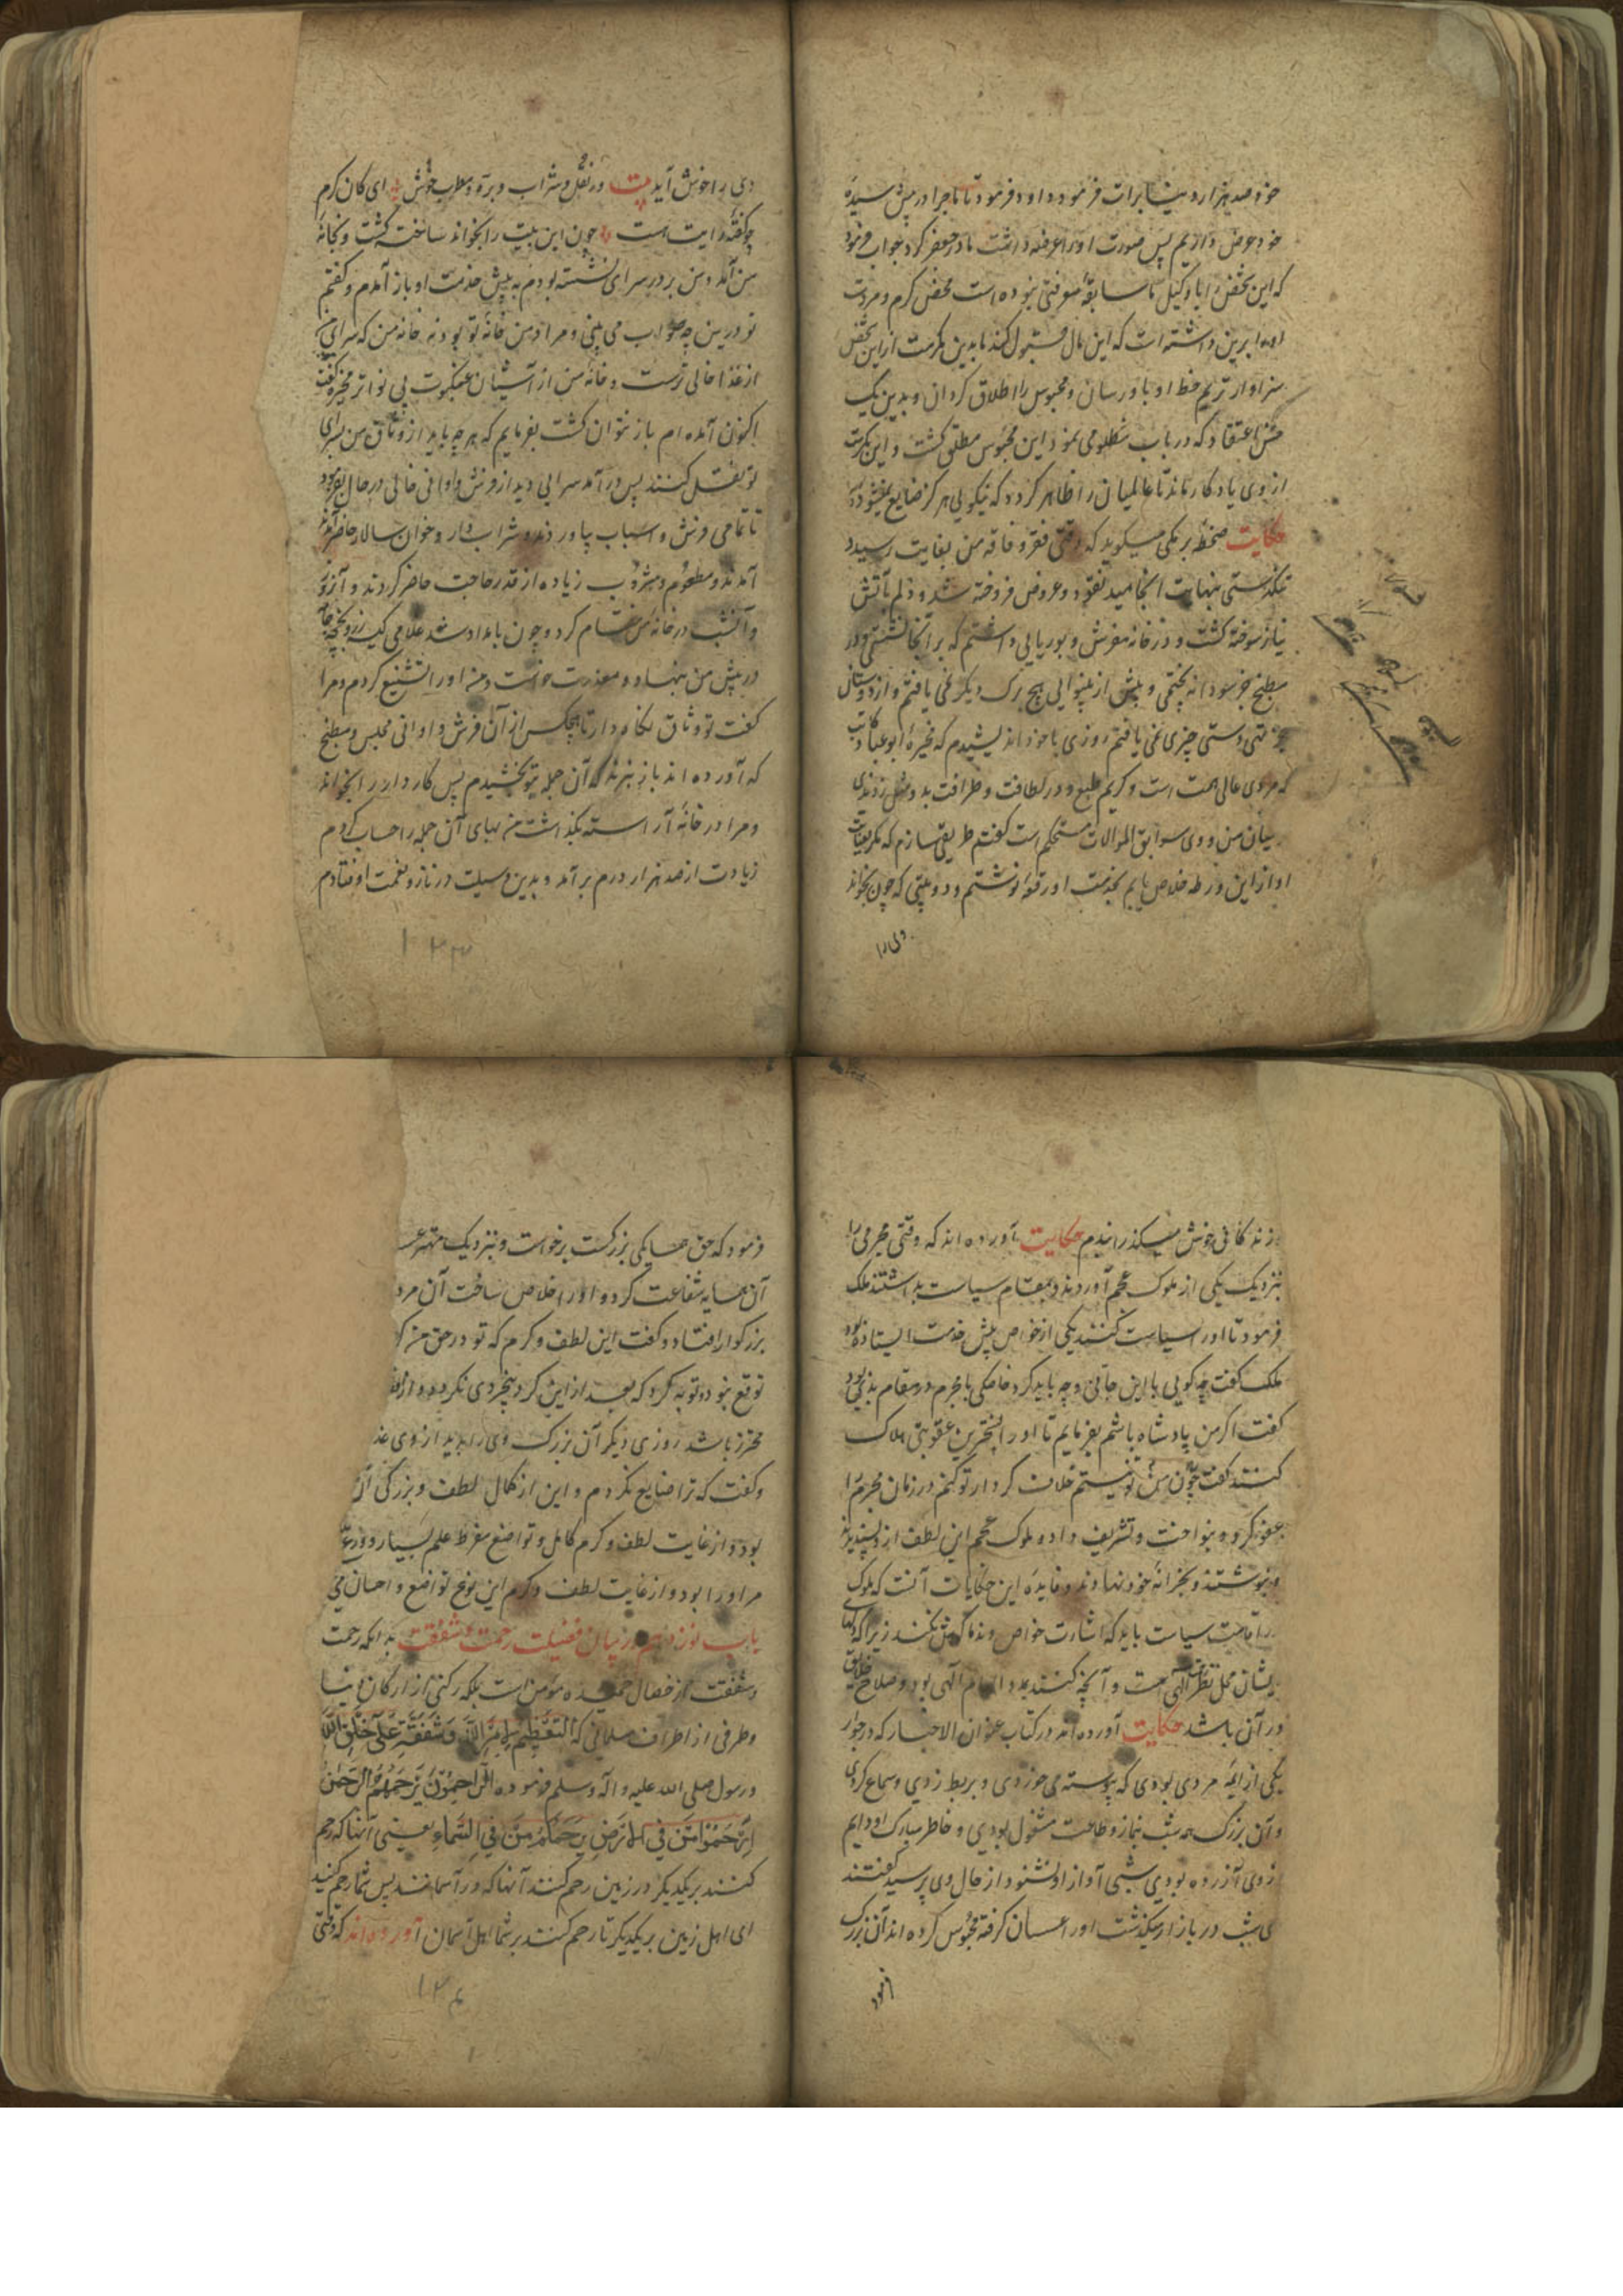 خود صد هزار دینار برات فرمود و داود فرمود تا ماجرا در پیش سیده
خود عرض داریم پس صورت او را عرضه داشت مادر جعفر کرد جواب فرمود
که این شخص را با وکیل ما سابقهٔ معرفتی نبوده است محض کرم و مروت
او را برین داشته است که این مال قبول کند ما بدین مکرمت از این شخص
سزاوارتریم خط او باو رسان و محبوس را اطلاق کردان و بدین یک
حسن اعتقاد که در باب مظلومی نمود این محبوس مطلق کشت و این مکرمت
از وی یادکار ماند تا عالمیان را ظاهر کردد که نیکویی هرکز ضایع نمیشود
حکایت جحظه برمکی میکوید که وقتی فقر و فاقه من بغایت رسید و
تنکدستی بنهایت انجامید نقود و عروض فروخته شد و دلم بآتش
نیاز سوخته کشت و در خانه مفرش و بوریایی داشتم که بر آنجا نشستمی و در
مطبخ جز سودا نه پختمی و بیش از بینوایی هیچ برک دیکر نمی یافتم و از دوستان
تهی دستی چیزی نمی یافتم روزی با خود اندیشیدم که مخیره ابو عباد کاتب
که مردی عالی همت است و کریم طبع و در لطافت و ظرافت بد و مثل زدندی
میان من و وی سوابق الموالات مستحکم است کفتم طریقی سازم که مکر بعنایت
او از این ورطه خلاص یابم بخدمت او رقعه نوشتم و دو بیتی که چون بخواند
وی را
وی را خوش آید بیت ور نقل و شراب و بره و مطرب خوش ای کان کرم
چو کفته‌اند ایت است چون این بیت را بخواند ساخته کشت و بخانهٔ
من آمد و من بر در سرای نشسته بودم به پیش خدمت او باز آمدم و کفتم
تو درین چه صواب می بینی و مراد من خانه تو بود نه خانه من که سرای من
از غذا خالی ترست و خانه من از آشیان عنکبوت بی نواتر مخیره کفت
اکنون آمده ام باز نتوان کشت بفرمایم که هر چه باید از وثاق من بسرای
تو نقل کنند پس در آمد سرایی دید از فرش و اوانی خالی در حال بفرمود
تا تمامی فرش و اسباب بیاوردند و شراب دار و خوان سالار حاضر آمدند
آمدند و مطعوم و مشروب زیاده از قدر حاجت حاضر کردند و آنروز
و آنشب در خانه من مقام کرد و چون بامداد شد غلامی کیسه زر و تختچه جامه
در پیش من بنهاد و معذرت خواست و من او را تشنیع کردم و مرا
کفت تو وثاق نکاه دار تا هیچکس از آن فرش و اوانی مجلس و مطبخ
که آورده اند باز نبرند که آن جمله بتو بخشیدم پس کار داران را بخواند
و مرا در خانه آراسته بکذاشت من بهای آن جمله را حساب کردم
زیادت از صد هزار درم برآمد و بدین وسیلت در ناز و نعمت اوفتادم
۱۲۳
زندکانی خوش میکذرانیدم حکایت آورده اند که وقتی مجرمی را
بنزدیک یکی از ملوک عجم آوردند و بمقام سیاست بداشتند ملک
فرمود تا او را سیاست کنند یکی از خواص پیش خدمت ایستاده بود
ملک کفت چه کویی با این جانی و چه باید کرد خاصکی با مجرم در مقام بدی بود
کفت اکر من پادشاه باشم بفرمایم تا او را بسخترین عقوبتی هلاک
کنند کفت چون من تو نیستم خلاف کردار تو کنم در زمان مجرم را
عفو کرد و بنواخت و تشریف داد و ملوک عجم این لطف از او پسندیدند
و بنوشتند و بخزانه خود نهادند و فایده این حکایات آنست که ملوک
را قاعدت سیاست باید که اشارت خواص و ندما کوش نکنند زیرا که دلهای
یشان محل نظر الهی است و آنچه کنند بمدد الهام الهی بود و صلاح خلایق
در آن باشد حکایت آورده اند در کتاب عنوان الاخبار که در جوار
یکی از ایمه مردی بودی که پیوسته می خوردی و بربط زدی و سماع کردی
و آن بزرک همه شب بنماز و طاعت مشغول بودی و خاطر مبارک او دایم
ز وی آزرده بودی شبی آواز او نشنود از حال وی پرسید کفتند
ی شب در بازار میکذشت او را عسسان کرفته محبوس کرده اند آن بزرک
فرمود
فرمود که حق همسایکی بزرکست برخواست و بنزدیک مهتر عسـ
آن همسایه شفاعت کرد و او را خلاص ساخت آن مرد
بزرکوار افتاد و کفت این لطف و کرم که تو در حق من کر
توقع نبود و توبه کرد که بعد از این کرد بیخردی نکردد و از
محترز باشد روزی دیکر آن بزرک وی را بدید از وی عذ
و کفت که ترا ضایع نکردم و این از کمال لطف و بزرکی آن
بود و از غایت لطف و کرم کامل و تواضع مفرط علم بسیار و ورع
مر او را بود و از غایت لطف و کرم این نوع تواضع و احسان می
باب نوزدهم در بیان فضیلت رحمت و شفقت بدانکه رحمت
و شفقت از خصال حمیده مومن است بلکه رکنی از ارکان ایمان
و طرفی از اطراف مسلمانی که التعظیم لامر الله وشفقة علی خلق الله
و رسول صلی الله علیه و آله وسلم فرموده الراحمون یرحمهم الرحمن
ارحموا من فی الارض یرحمکم من فی السماء یعنی آنها که رحم
کنند بر یکدیکر در زمین رحم کنند آنها که در آسمانند پس شما رحم کنید
ای اهل زمین بر یکدیکر تا رحم کنند بر شما اهل آسمان آورده اند که وقتی
۱۲۴